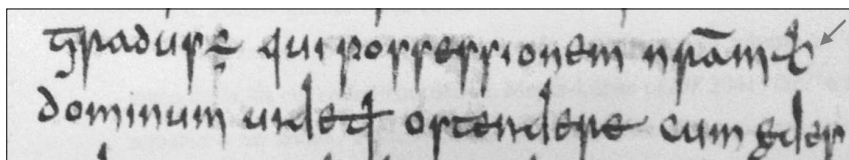 gradus ÷ qui possessionem nr̄am
dominum uidet ostendere cum eder